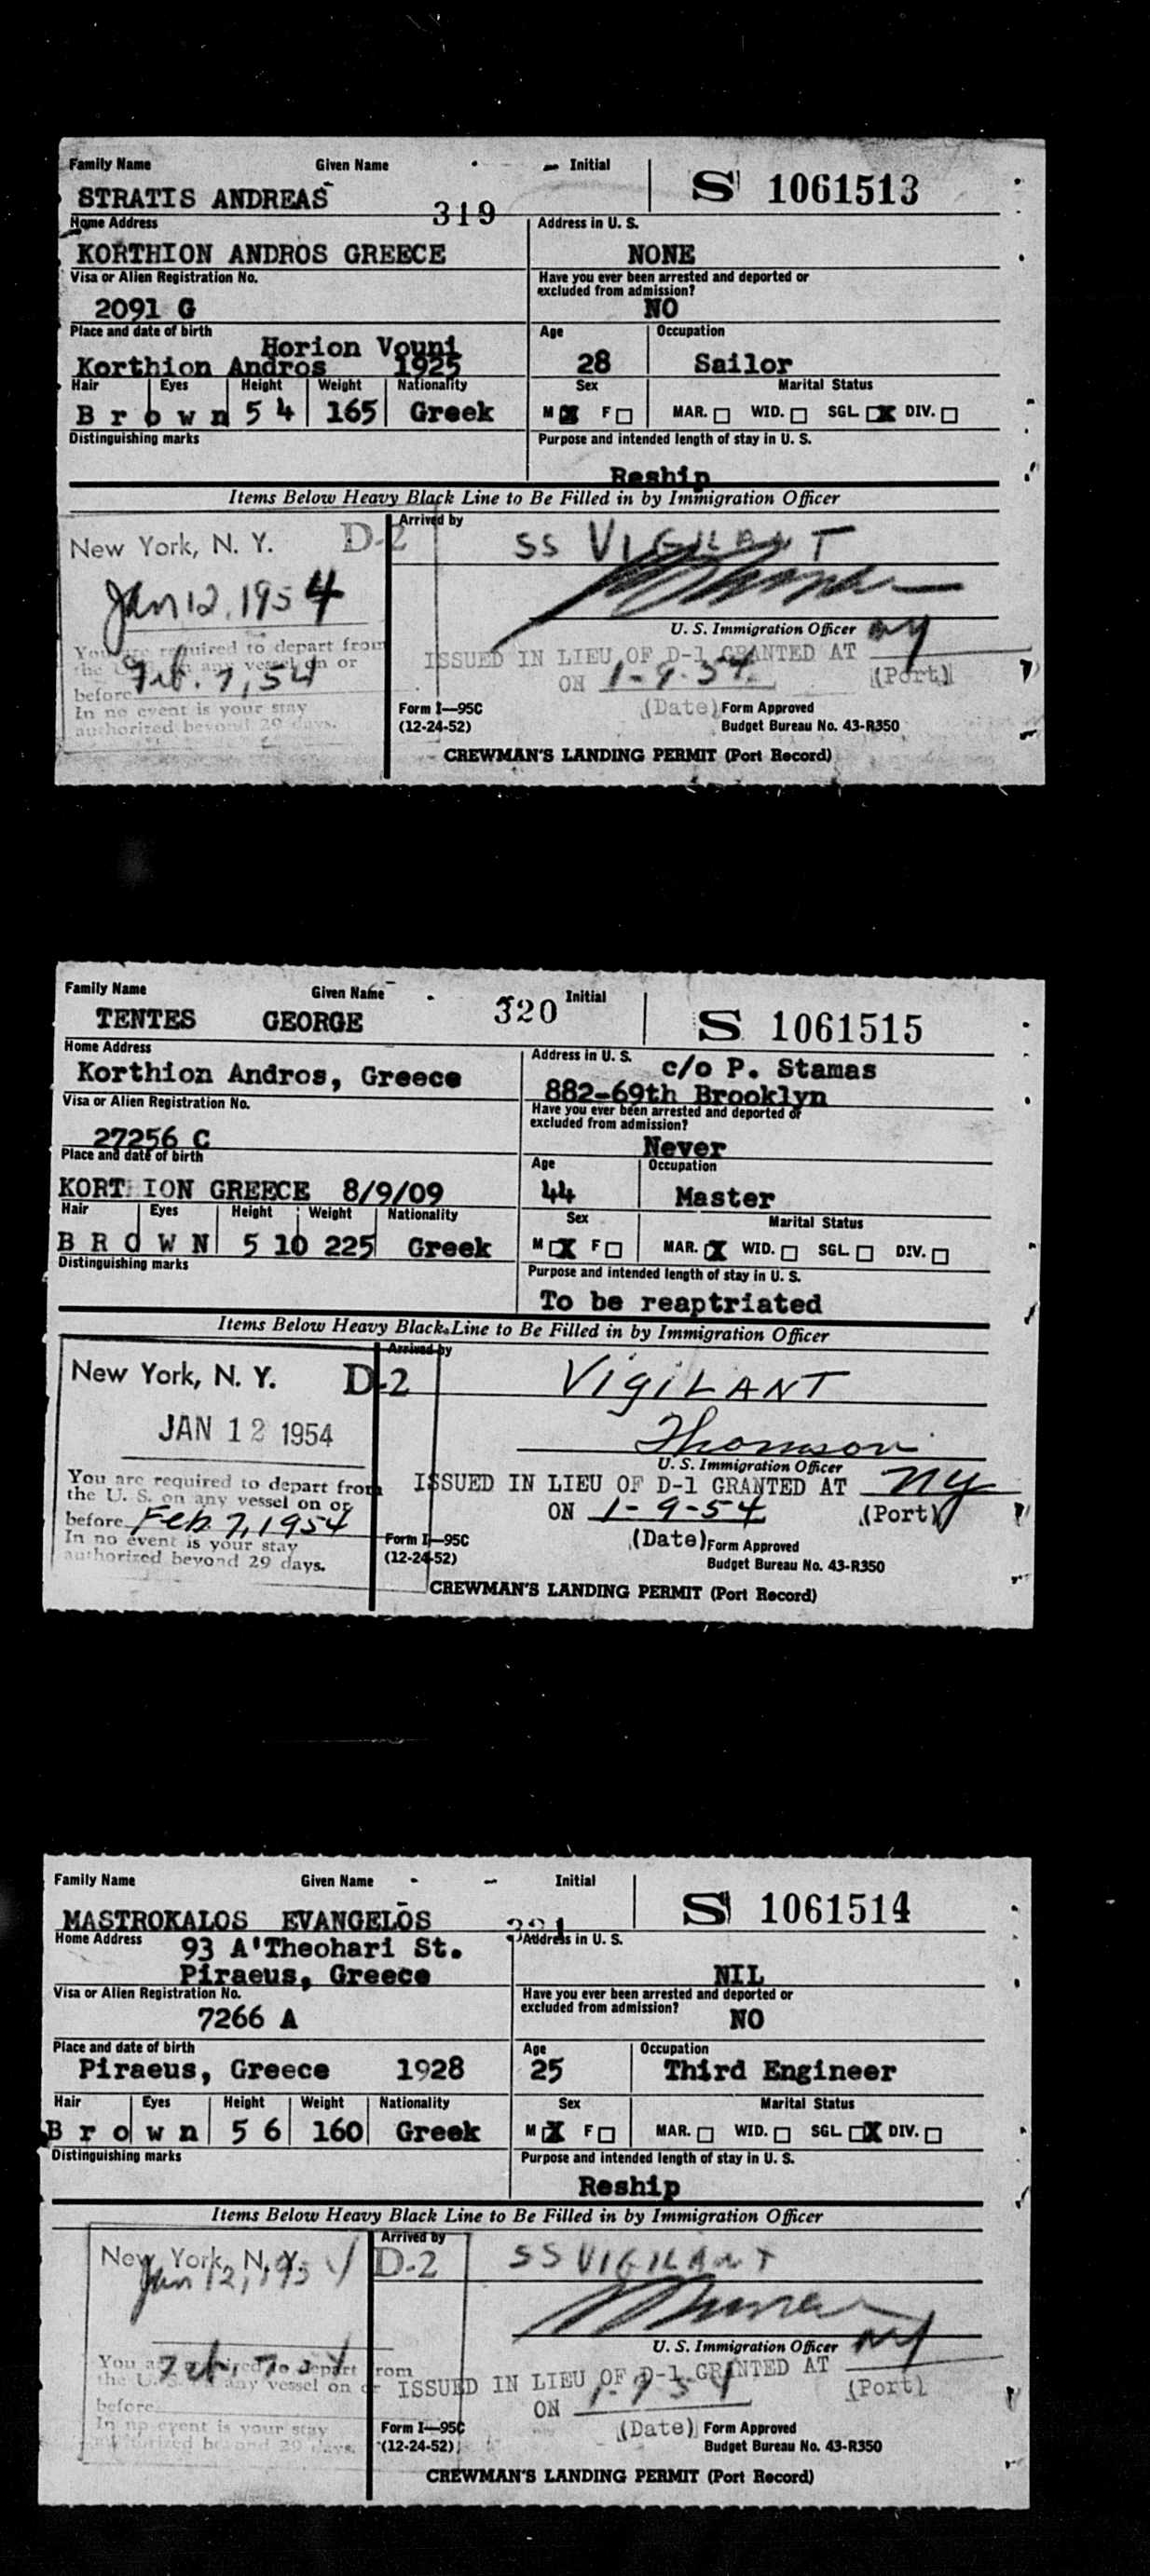 Family Name Given Name Initial
STRATIS ANDREAS
S 1061513
319
Home Address
KORTHION ANDROS GREECE
Address in U. S.
NONE
Visa or Alien Registration No.
2091 G
Have you ever been arrested and deported or
excluded from admission?
NO
Place and date of birth
Horion Vouni
Korthion Andros 1925
Age
28
Occupation
Sailor
Hair Eyes Height Weight Nationality
Brown 5 4 165 Greek
Sex
M X F
Marital Status
MAR. WID. SGL. X DIV.
Distinguishing marks
Purpose and intended length of stay in U. S.
Reship
Items Below Heavy Black Line to Be Filled in by Immigration Officer
New York, N. Y. D-2
Jan 12, 1954
You are required to depart from
the U. S. on any vessel on or
before Feb. 7, 54
In no event is your stay
authorized beyond 29 days.
Arrived by
SS VIGILANT
U. S. Immigration Officer
ISSUED IN LIEU OF D-1 GRANTED AT NY
ON 1-9-54 (Port)
(Date)
Form I—95C
(12-24-52)
Form Approved
Budget Bureau No. 43-R350
CREWMAN'S LANDING PERMIT (Port Record)
Family Name Given Name Initial
TENTES GEORGE
320
S 1061515
Home Address
Korthion Andros, Greece
Address in U. S.
c/o P. Stamas
882-69th Brooklyn
Visa or Alien Registration No.
27256 C
Have you ever been arrested and deported or
excluded from admission?
Never
Place and date of birth
KORT ION GREECE 8/9/09
Age
44
Occupation
Master
Hair Eyes Height Weight Nationality
BROWN 5 10 225 Greek
Sex
M X F
Marital Status
MAR. X WID. SGL. DIV.
Distinguishing marks
Purpose and intended length of stay in U. S.
To be reaptriated
Items Below Heavy Black Line to Be Filled in by Immigration Officer
New York, N. Y. D-2
JAN 12 1954
You are required to depart from
the U. S. on any vessel on or
before Feb. 7, 1954
In no event is your stay
authorized beyond 29 days.
Arrived by
VIGILANT
Thomson
U. S. Immigration Officer
ISSUED IN LIEU OF D-1 GRANTED AT NY
ON 1-9-54 (Port)
(Date)
Form I—95C
(12-24-52)
Form Approved
Budget Bureau No. 43-R350
CREWMAN'S LANDING PERMIT (Port Record)
Family Name Given Name Initial
MASTROKALOS EVANGELOS
S 1061514
Home Address
93 A'Theohari St.
Piraeus, Greece
Address in U. S.
NIL
Visa or Alien Registration No.
7266 A
Have you ever been arrested and deported or
excluded from admission?
NO
Place and date of birth
Piraeus, Greece 1928
Age
25
Occupation
Third Engineer
Hair Eyes Height Weight Nationality
Brown 5 6 160 Greek
Sex
M X F
Marital Status
MAR. WID. SGL. X DIV.
Distinguishing marks
Purpose and intended length of stay in U. S.
Reship
Items Below Heavy Black Line to Be Filled in by Immigration Officer
New York, N. Y. D-2
Jan 12, 1954
You are required to depart from
the U. S. on any vessel on or
before Feb. 7 54
In no event is your stay
authorized beyond 29 days.
Arrived by
SS VIGILANT
U. S. Immigration Officer
ISSUED IN LIEU OF D-1 GRANTED AT NY
ON 1-9-54 (Port)
(Date)
Form I—95C
(12-24-52)
Form Approved
Budget Bureau No. 43-R350
CREWMAN'S LANDING PERMIT (Port Record)